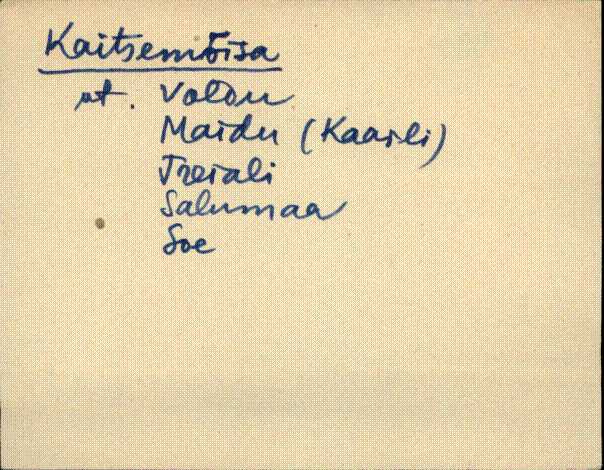 Kaitsemõisa
vt. Valdu
Maidu (Kaarli)
Treiali
Salumaa
Soe